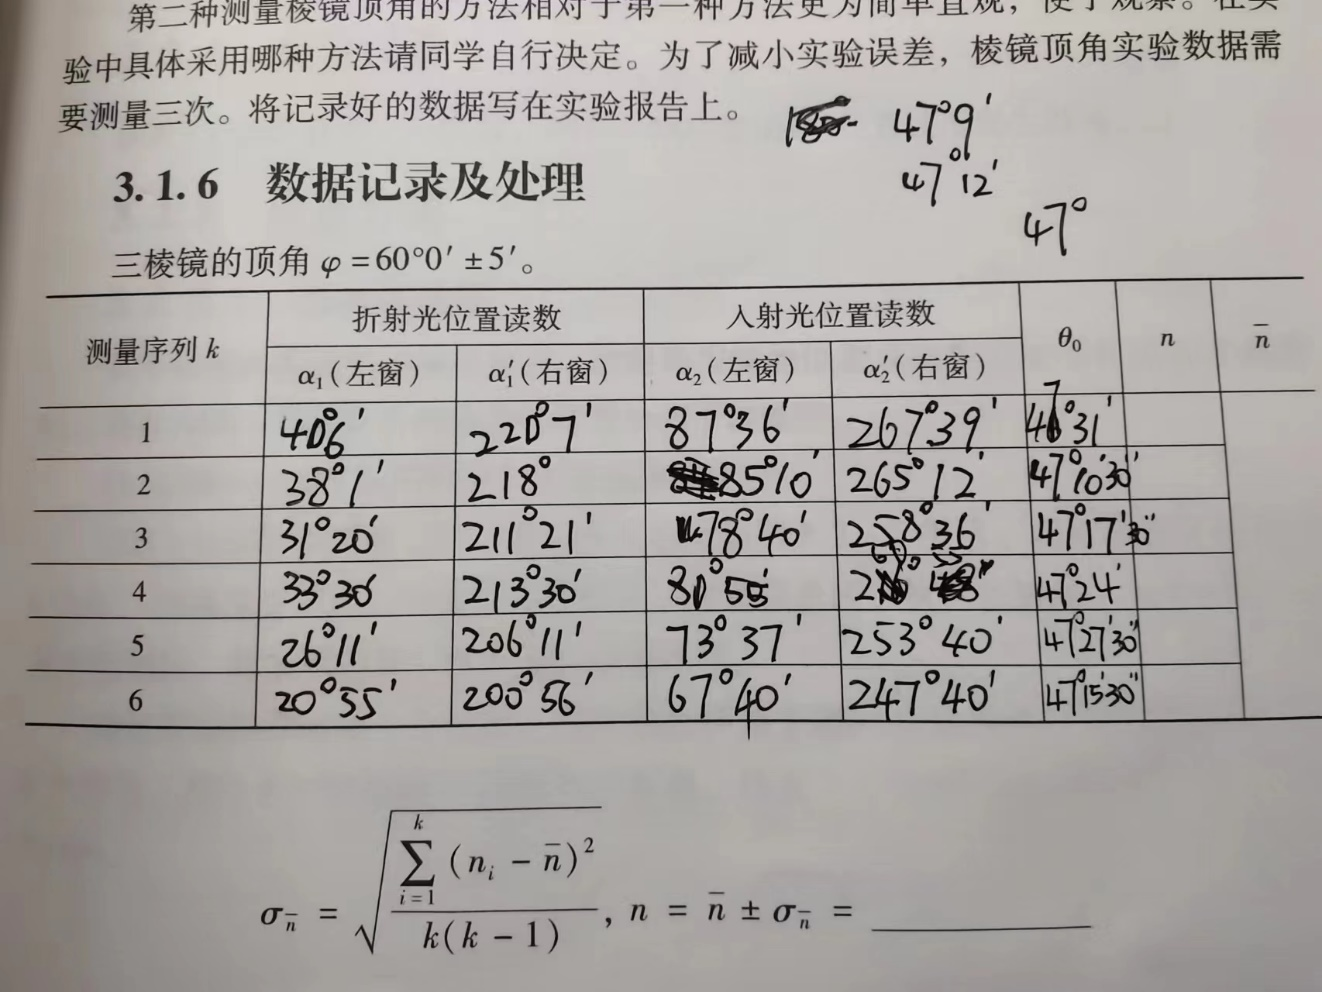 第二种测量棱镜顶角的方法相对于第一种方法更为简单直观，便于观察。在实
验中具体采用哪种方法请同学自行决定。为了减小实验误差，棱镜顶角实验数据需
要测量三次。将记录好的数据写在实验报告上。
47°9′
47°12′
47°
3.1.6 数据记录及处理
三棱镜的顶角 φ=60°0′±5′。
测量序列 k 折射光位置读数 入射光位置读数 θ₀ n n̄
α₁(左窗) α₁′(右窗) α₂(左窗) α₂′(右窗)
1 40°6′ 220°7′ 87°36′ 267°39′ 47°31′
2 38°1′ 218° 85°10′ 265°12′ 47°10′30″
3 31°20′ 211°21′ 78°40′ 258°36′ 47°17′30″
4 33°30′ 213°30′ 47°24′
5 26°11′ 206°11′ 73°37′ 253°40′ 47°27′30″
6 20°55′ 200°56′ 67°40′ 247°40′ 47°15′30″
σ_n̄ = √(∑_{i=1}^{k}(nᵢ − n̄)² / k(k − 1)), n = n̄ ± σ_n̄ =